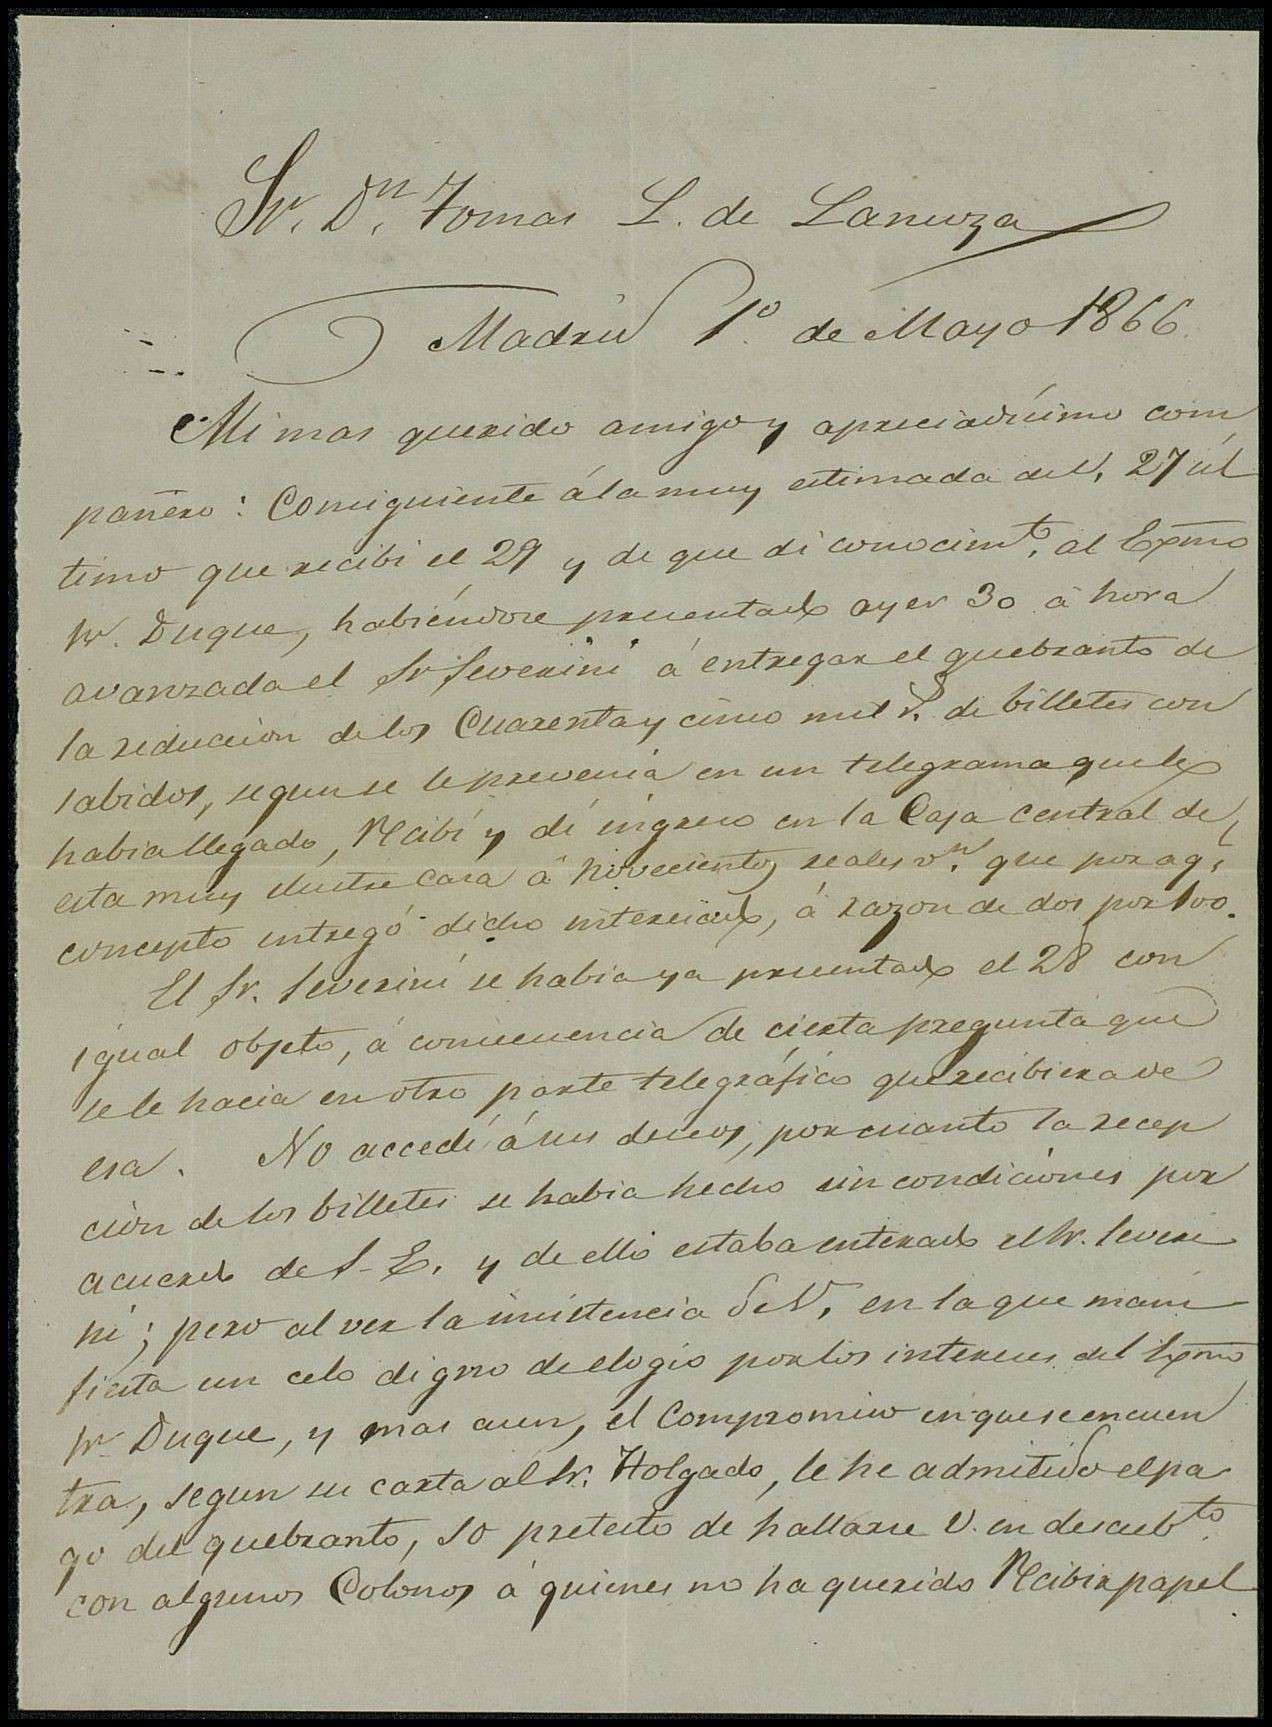 Sr. Dn. Tomas L. de Lanuza
Madrid 1º de Mayo 1866.
Mi mas querido amigo y apreciadísimo com
pañero: Consiguiente á la muy estimada de V. 27 úl
timo que recibi el 29 y de que di conocimto. al Exmo
Sr. Duque, habiéndose presentado ayer 30 á hora
avanzada el Sr Severini á entregar el quebranto de
la reduccion de los Cuarenta y cinco mil r. de billetes con
sabidos, segun se le prevenia en un telegrama que le
habia llegado, Recibí y dí ingreso en la Caja central de
esta muy ilustre casa á novecientos reales vn. que por aql.
concepto entregó dicho interesado, á razon de dos por 100.
El Sr. Severini se habia ya presentado el 28 con
igual objeto, á consecuencia de cierta pregunta que
se le hacia en otro parte telegráfico que recibiera de
esa. No accedí á sus deseos, por cuanto la recep
cion de los billetes se habia hecho sin condiciones por
acuerdo de S. E. y de ello estaba enterado el Sr. Severi
ni; pero al ver la insistencia de V. en la que mani
fiesta un celo digno de elogio por los intereses del Exmo
Sr Duque, y mas aun, el Compromiso en que se encuen
tra, segun su carta al Sr. Holgado, le he admitido el pa
go del quebranto, so pretesto de hallarse V. en descubto
con algunos Colonos á quienes no ha querido Recibir papel